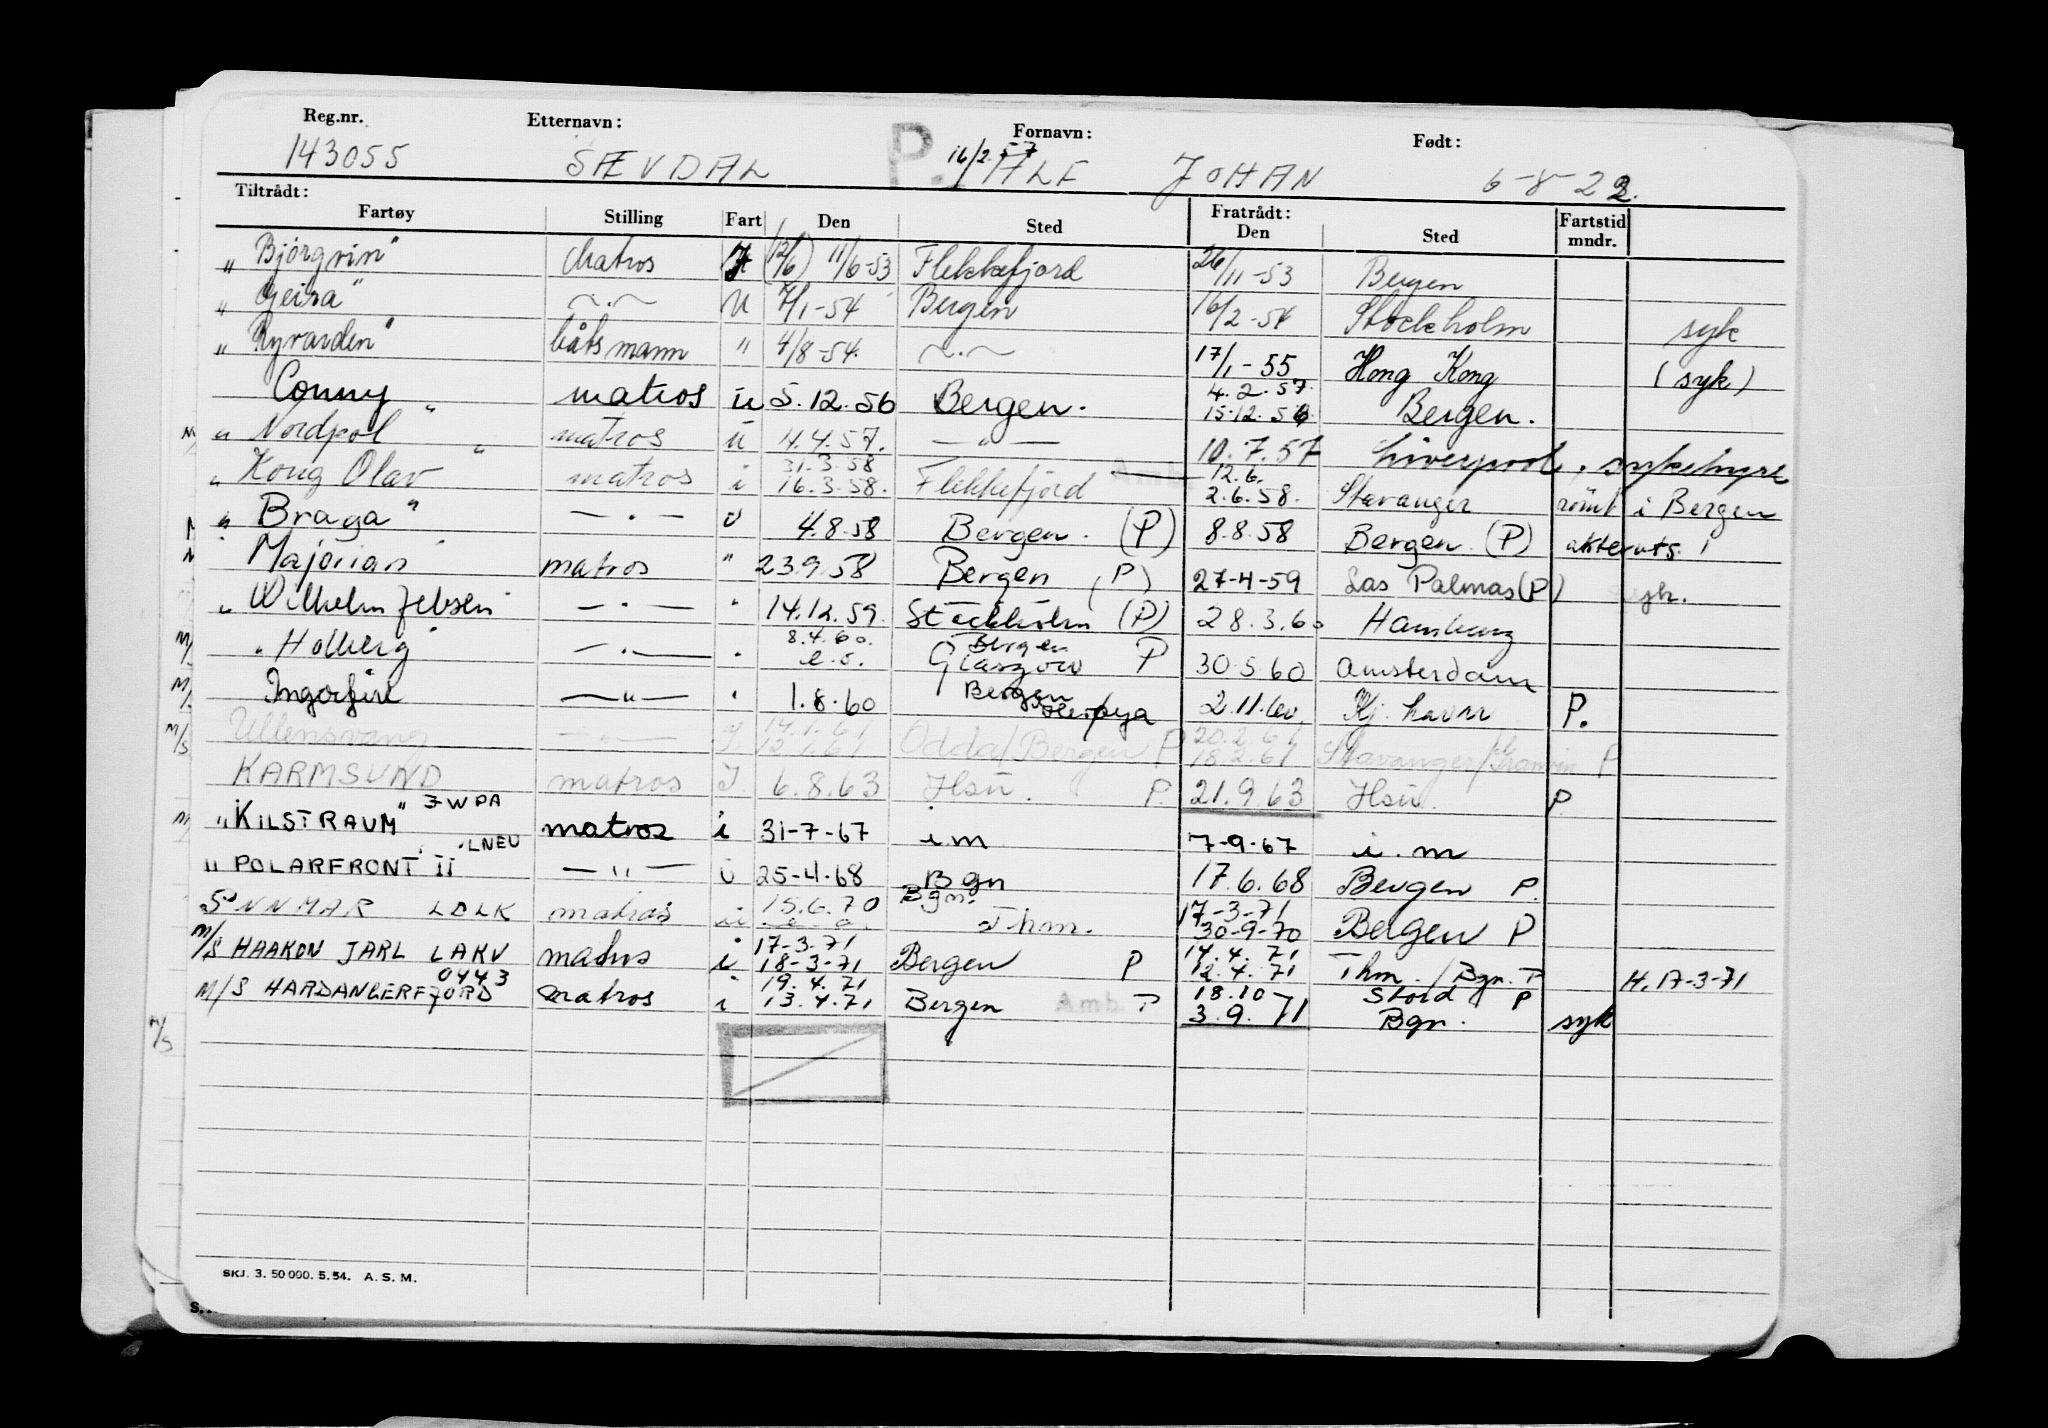 Reg.nr. Etternavn: Fornavn: Født:
143055 SÆVDAL P. 16/2.57 ALF JOHAN 6-8-22.
Tiltrådt: Fratrådt:
Fartøy Stilling Fart Den Sted Den Sted Fartstid mndr.
„ Bjørgvin" Matros (12/6) 11/6-53 Flekkefjord 26/11-53 Bergen
„ Geira" ~.~ U 7/1-54 Bergen 16/2-54 Stockholm syk
„ Ryvarden" båtsmann " 4/8-54. ~.~ 17/1-55 Hong Kong (syk)
Conny " matros u 5.12.56 Bergen. 4.2.57. 15.12.56 Bergen.
" Nordpol " matros u 4.4.57. — " — 10.7.57 Liverpool, sykehyre
" Kong Olav matros i 31.3.58 16.3.58. Flekkefjord Amb. 12.6. 2.6.58. Stavanger rømt i Bergen
" Braga " — . — U 4.8.58 Bergen. (P) 8.8.58 Bergen. (P) akteruts.
" Majorian " matros " 23.9.58 Bergen (P) 27-4-59 Las Palmas (P) syk.
" Wilhelm Jebsen" — . — " 14.12.59. Stockholm (P) 28.3.60 Hamburg
M/ " Holberg " — . — " 8.4.60. e.o. Bergen Glasgow P 30.5.60 Amsterdam
M/ Ingerfire — " — " 1.8.60 Bergen 2.11.60. Kj. havn P.
M/S Ullensvang — " — I. 14.1.61 12.1.61 Odda/Bergen P 20.2.61 18.2.61 Stavanger/ P
KARMSUND matros I. 6.8.63 Hsu. P. 21.9.63 Hsu. P.
„KILSTRAUM" JWPA matros i 31-7-67 i.m 7-9-67 i.m
" POLARFRONT II" LNEU — " — U 25-4-68 Bgn 17.6.68 Bergen P.
SUNNMAR LDLK matros u 15.6.70 e-o. Bgn. Thm. 17-3-71 30-9-70 Bergen P
M/S HAAKON JARL LAKV matros i 17-3-71 18-3-71 Bergen P 14.4.71 12.4.71 Thm./Bgn. P H. 17-3-71
M/S HARDANGERFJORD 0443 matros i 19.4.71 13.4.71 Bergen Amb. P 18.10 3.9.71 Stord P Bgn. syk
M/S
SKJ. 3. 50 000. 5. 54. A. S. M.